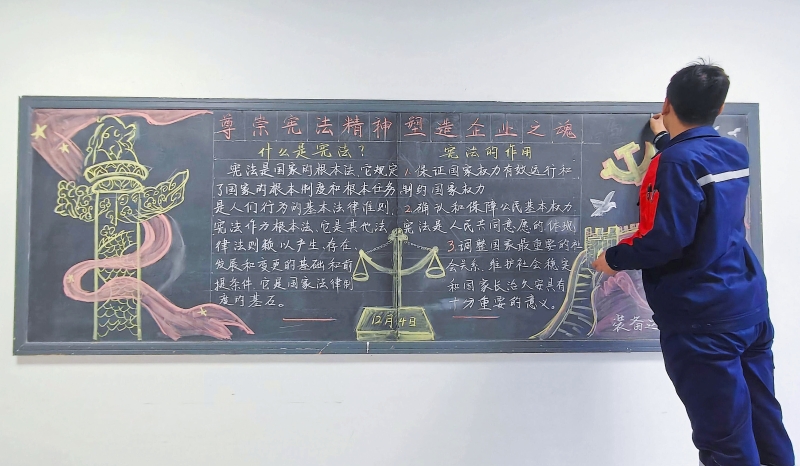 尊崇宪法精神 塑造企业之魂
什么是宪法？
宪法是国家的根本法，它规定
了国家的根本制度和根本任务，
是人们行为的基本法律准则，
宪法作为根本法，它是其他法
律法则赖以产生、存在、
发展和变更的基础和前
提条件，它是国家法律制
度的基石。
宪法的作用
1.保证国家权力有效运行和
制约国家权力
2.确认和保障公民基本权力
宪法是人民共同意愿的体现
3.调整国家最重要的社
会关系，维护社会稳定
和国家长治久安具有
十分重要的意义。
12月4日
装备